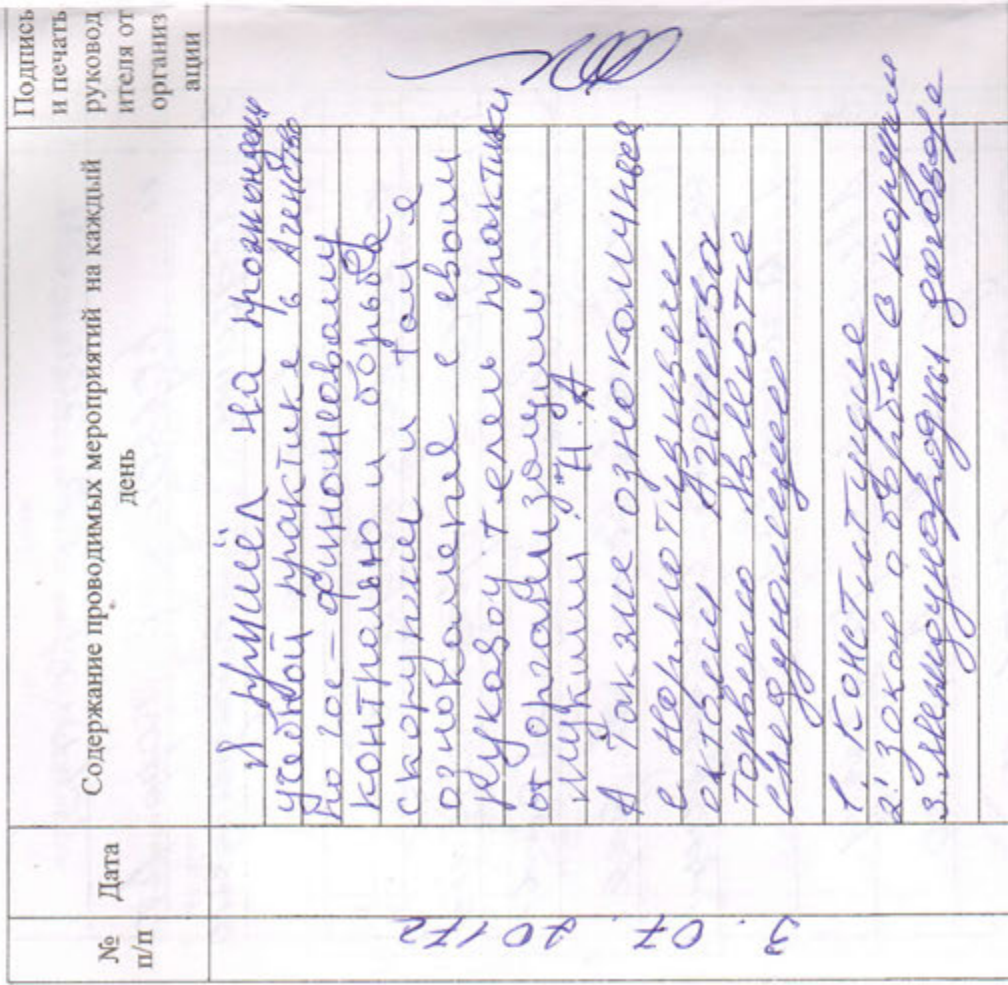 № п/п
Дата
Содержание проводимых мероприятий на каждый
день
Подпись
и печать
руковод
ителя от
организ
ации
3.07.2017г
Я пришёл на прохождения
учебной практике в Агенство
по гос-финоновому
контролью и борьбе
с корупцией там я
ознокомление с своим
руководителем практики
от организации
Н.А
А также ознокомлиные
с нормотивнеи
октвеи Агенетва
торвеио
следующее
1. Конститутцие
2. закон о борбе в корупции
3. Международны договоре